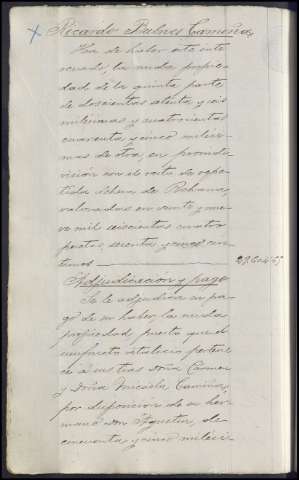 Ricardo Bulnes Camiña
Ha de haber este inte
resado, la nuda propie
dad de la quinta parte
de doscientas ochenta y seis
milésimas y cuatrocientas
cuarenta y cinco milési-
mas de otra, en proindi-
visión con el resto de
dehesa de
valoradas en veinte y nue
ve mil seiscientas cuatro
pesetas, sesenta y cinco cen-
timos 29.604'65
Adjudicación y pago
Se le adjudica en pa-
go de su haber, la nuda
propiedad puesto que el
usufructo vitalicio pertene
ce á sus tias Doña Carmen
y Doña Micaela Camiña,
por disposición de su her-
mano Don Agustin, de
cincuenta y cinco milési-